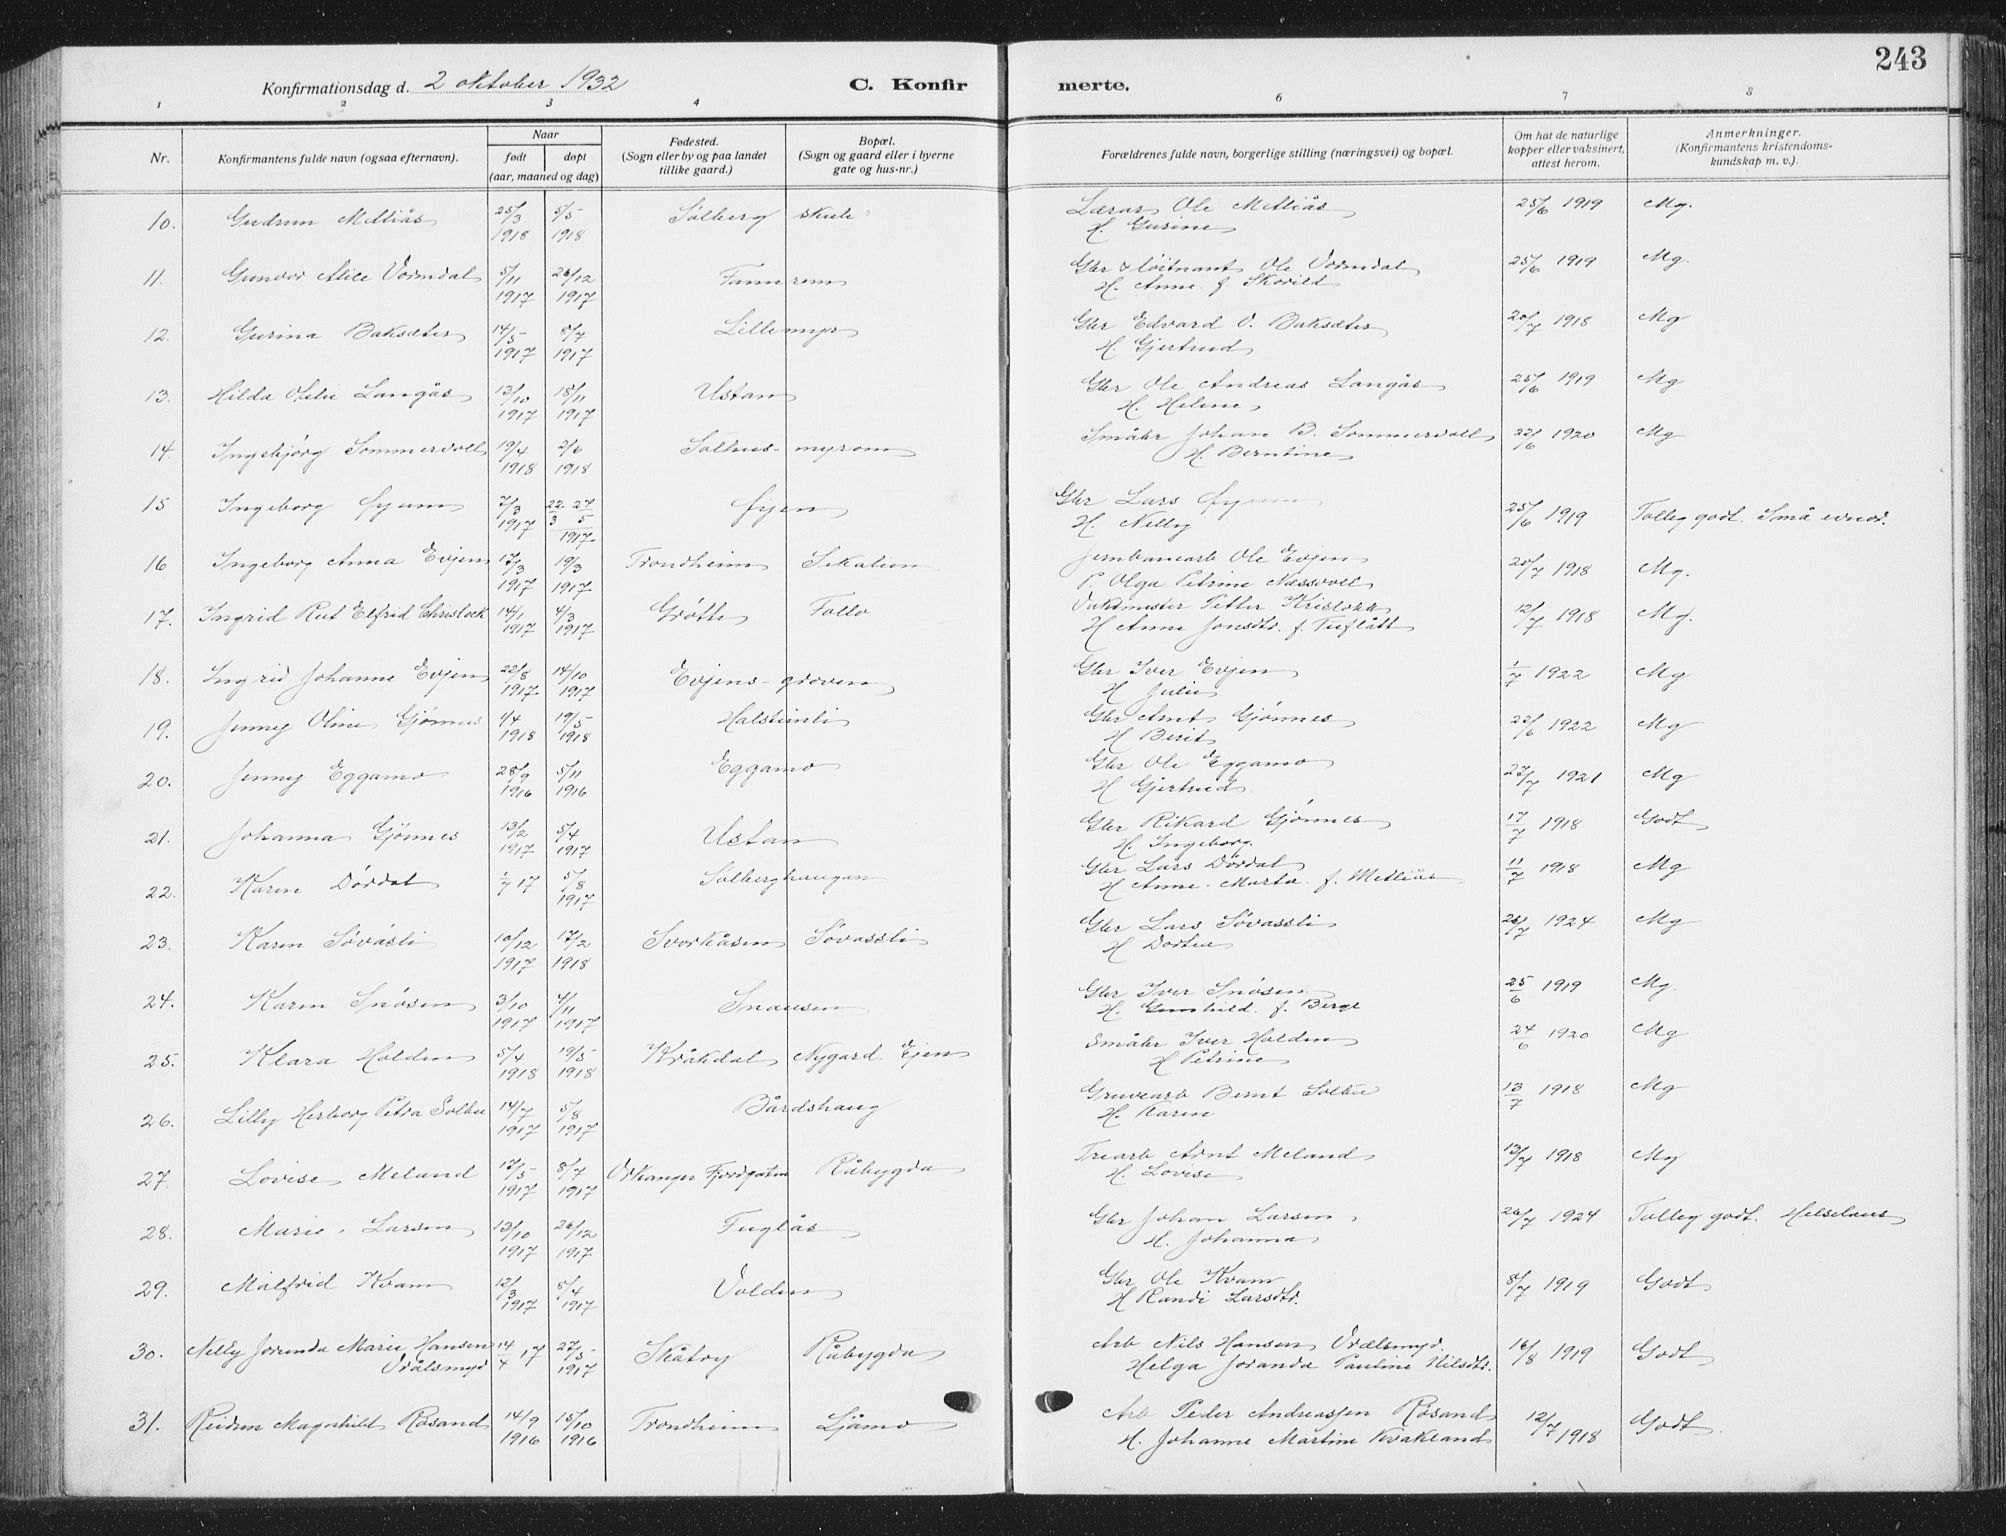 243
Konfirmationsdag d. 2 oktober 1932 C. Konfir merte.
1 2 3 4 6 7 8
Nr. Konfirmantens fulde navn (ogsaa efternavn). Naar født døpt (aar, maaned og dag) Fødested. (Sogn eller by og paa landet tillike gaard.) Bopæl. (Sogn og gaard eller i byerne gate og hus-nr.) Forældrenes fulde navn, borgerlige stilling (næringsvei) og bopæl. Om hat de naturlige kopper eller vaksinert, attest herom. Anmerkninger. (Konfirmantens kristendoms-kundskap m. v.).
10. Gudrun Metliås 25/3 1918 5/5 1918 Solberg skule Lærar Ole Metliås 25/6 1919 Mg.
H. Gurine
11. Gunvor Alice Vormdal 5/11 1917 26/12 1917 Fannrem Gbr & løitnant Ole Vormdal 25/6 1919 Mg.
H. Anne f. Skovild
12. Gurina Baksæter 14/5 1917 8/7 1917 Lillemyr Gbr Edvard O. Baksæter 20/7 1918 Mg
H. Gjertrud
13. Hilda Ofelie Langås 13/10 1917 18/11 1917 Ustan Gbr Ole Andreas Langås 25/6 1919 Mg
H. Helene
14. Ingebjörg Sommervoll 19/4 1918 2/6 1918 Solhus-myrom Småbr Johan B. Sommervoll 22/6 1920 Mg
H. Berntine
15 Ingeborg Øyum 7/3 1917 22/3 27/5 1917 Øyen Gbr Lars Øyum 25/6 1919 Tolleg godt. Små evner.
H. Nelly
16 Ingeborg Anna Evjen 17/3 1917 19/3 1917 Trondheim Gbr Jernbanearb Ole Evjen 20/7 1918 Mg.
P. Olga Petrine Næsvold
17. Ingrid Rut Elfrid Christock 14/1 1917 4/3 1917 Grötte Follo Vaktmester Petter Kristokk 12/7 1918 Mg.
H Anne Jonsdtr. f. Tuflått
18. Ingrid Johanne Evjen 22/8 1917 14/10 1917 Evjens-groven Gbr Iver Evjen 1/7 1922 Mg
H Julie
19. Jenny Oline Gjönnes 1/4 1918 19/5 1918 Halsteinli Gbr Arnt Gjönnes 22/6 1922 Mg
H Berit
20. Jenny Eggamo 28/9 1916 5/11 1916 Eggamo Gbr Ole Eggamo 27/7 1921 Mg
H Gjertrud
21. Johanna Gjönnes 13/2 1917 5/4 1917 Ustan Gbr Rikard Gjönnes 17/7 1918 Godt
H. Ingeborg.
22. Karen Dördal 1/7 17 5/8 1917 Solberghaugan Gbr Lars Dördal 11/7 1918 Mg
H Anne Marta f. Metliås
23. Karen Sövåsli 10/12 1917 17/2 1918 Svorkåsen Sövassli Gbr Lars Sövassli 26/7 1924 Mg
H Dortea
24. Karen Snösen 3/10 1917 4/11 1917 Snausen Gbr Iver Snösen 25/6 1919 Mg.
H. Gunhild f. Berge
25. Klara Holden 5/4 1918 19/5 1918 Kråkdal Nygard. Ejen Småbr Iver Holden 24/6 1920 Mg
H Petrine
26. Lilly Herborg Petra Solbu 14/7 1917 5/8 1917 Bårdshaug Gruvearb Bernt Solbu 13/7 1918 Mg
H. Karen
27. Lovise Meland 17/5 1917 8/7 1917 Orkanger Fjordgaten Råbygda Trearb Arnt Meland 13/7 1918 Mg
H. Lovise
28. Marie Larsen 13/10 1917 26/12 1917 Fuglås Gbr Johan Larsen 26/7 1924 Tolleg godt. Helselaus
H. Johanna
29. Målfrid Kvam 12/3 1917 8/4 1917 Volden Gbr Ole Kvam 8/7 1919 Godt
H Randi Larsdtr.
30. Nelly Jorunda Marie Hansen 14/4 17 27/5 1917 Skåtøy Råbygda Arb Nils Hansen Vrælsmyr. 16/8 1919 Godt
Vrålsmyr Helga Joranda Pauline Nilsdtr.
31. Reidun Magnhild Rosand 14/9 1916 15/10 1916 Trondheim Ljåmo Arb Peder Andreassen Rosand 12/7 1918 Godt
H. Johanne Martine Kvakland